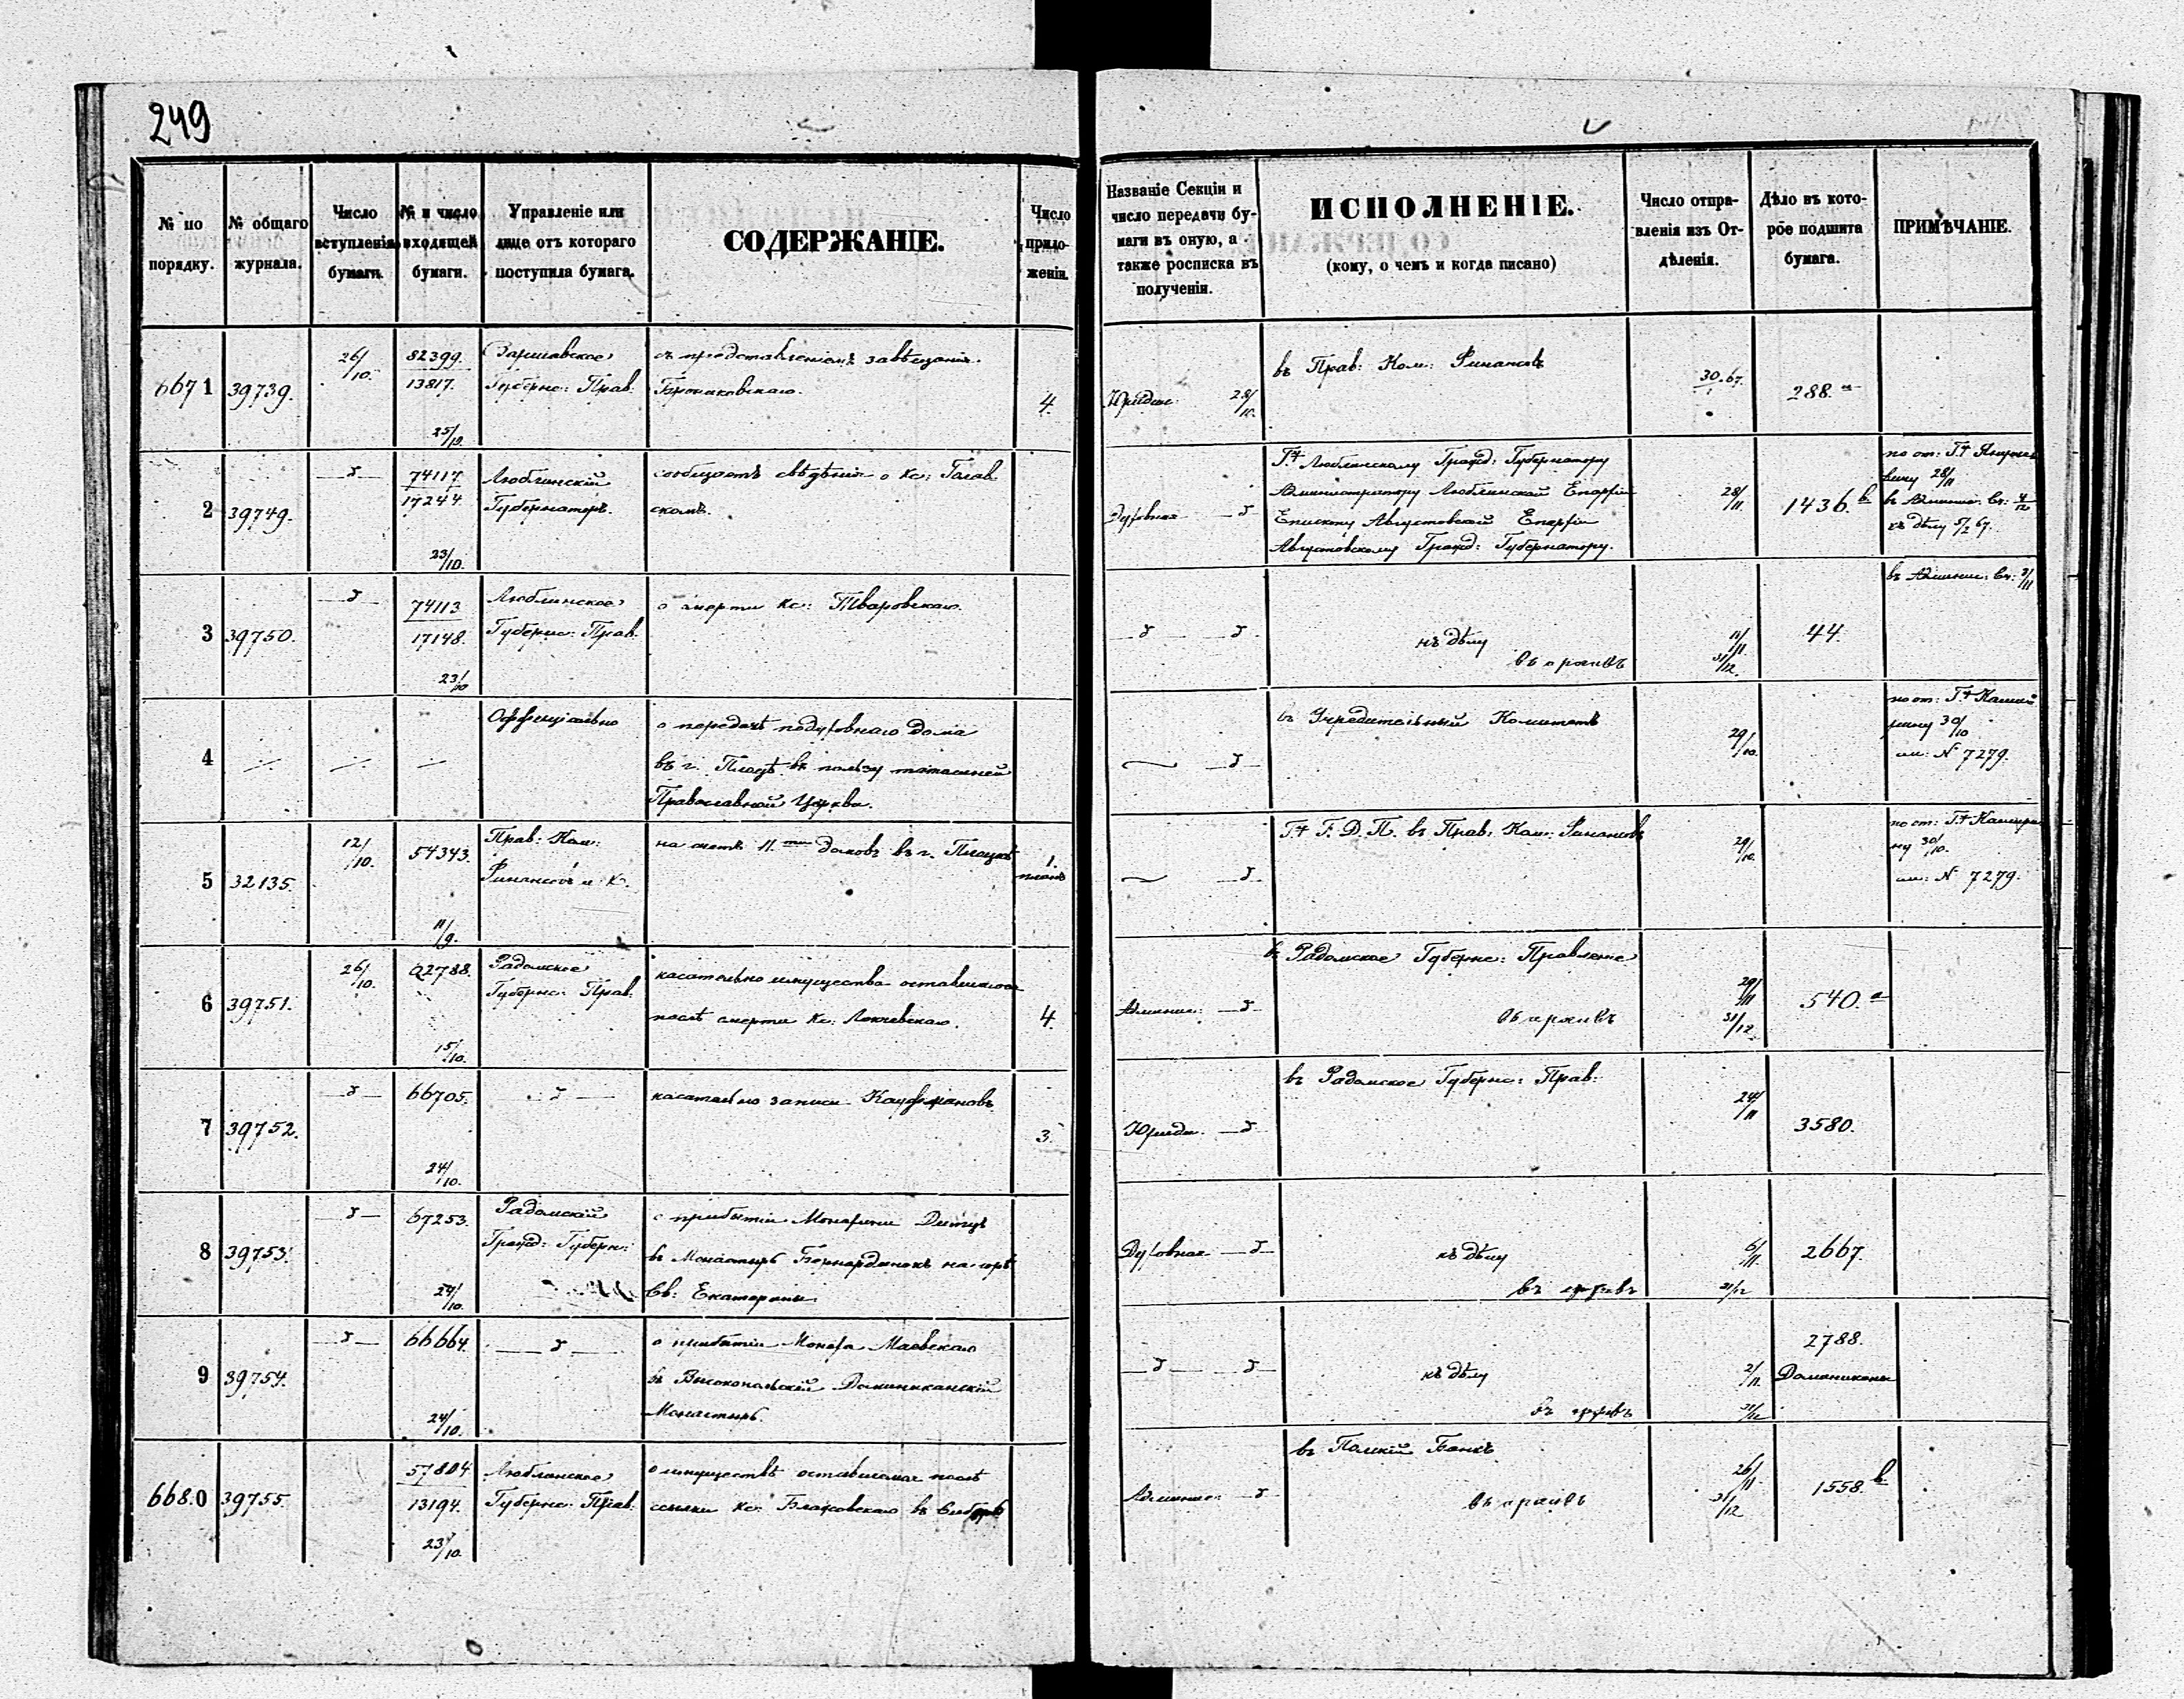 249
№ по порядку.
№ общаго журнала.
Число вступленія бумаги.
№ и число входящей бумаги.
Управленіе или лице отъ котораго поступила бумага.
СОДЕРЖАНІЕ.
Число приложеній.
Названіе Секціи и число передачи бумаги въ оную, а также росписка въ полученіи.
ИСПОЛНЕНІЕ.
(кому, о чемъ и когда писано)
Число отправленія изъ Отдѣленія.
Дѣло въ которое подшита бумага.
ПРИМѢЧАНІЕ.
6671 39739. 26/10. 82399. 13817. 25/10.
Варшавское Губернс: Прав:
съ представленіемъ завѣщанія
4.
28/10.
въ Прав: Ком: Финансовъ
30 67.
288.
2 39749. 74117 17244 23/10.
Люблинскій Губернаторъ.
сообщаетъ свѣдѣнія о Кс:
Духовная
Г. Люблинскому Гражд: Губернатору
Администратору Люблинской Епархіи
Епископу Августовской Епархіи
Августовскому Гражд: Губернатору.
28/11.
1436. в
28/11
къ дѣлу 5/2 67.
3 39750. 74113 17148. 23/10
Люблинское Губернс: Прав.
о смерти Кс: Тваровскаго.
къ дѣлу
въ архивъ
11/11.
31/12.
44.
4
Оффиціально
о передачѣ подуховнаго дома
въ г. Плоцкѣ въ пользу тамошней
Православной Церкви.
въ Учредительный Комитетъ
29/10.
30/10
№ 7279.
5 32135. 12/10. 54343. 11/9.
Прав: Ком:
Финансовъ и К.
на счетъ 11. домовъ въ г. Плоцкѣ
1. планъ
Г. Г. Д. П. въ Прав: Ком: Финансовъ
29/10.
30/10.
№ 7279.
6 39751. 26/10. 62788. 15/10.
Радомское
Губернс: Прав:
касательно имущества оставшагося
послѣ смерти Кс:
4.
Админис:
въ Радомское Губернс: Правленіе
въ архивъ
29/11
31/12.
540. а
7 39752. 66705. 24/10.
касательно записи Кауфмановъ
3.
Юриди.
въ Радомское Губернс: Прав:
24/11
3580.
8 39753. 67253. 24/10.
Радомскій
Гражд: Губерн:
о прибытіи Монахини
въ Монастырь Бернардинокъ на горѣ
Св: Екатерины
Духовная
къ дѣлу
въ архивъ
6/11.
31/12
2667.
9 39754. 66664. 24/10.
о прибытіи Монаха Маевскаго
въ Высококольскій Доминиканскій
Монастырь.
къ дѣлу
въ архивъ
2/11.
31/12
2788.
Доминиканы
6680 39755. 57804 13194. 23/10.
Люблинское
Губернс: Прав:
о имуществѣ оставшемся послѣ
ссылки Кс: Блажовскаго въ Сибирь
Админис:
въ Польскій Банкъ
въ архивъ
26/11
31/12
1558. в